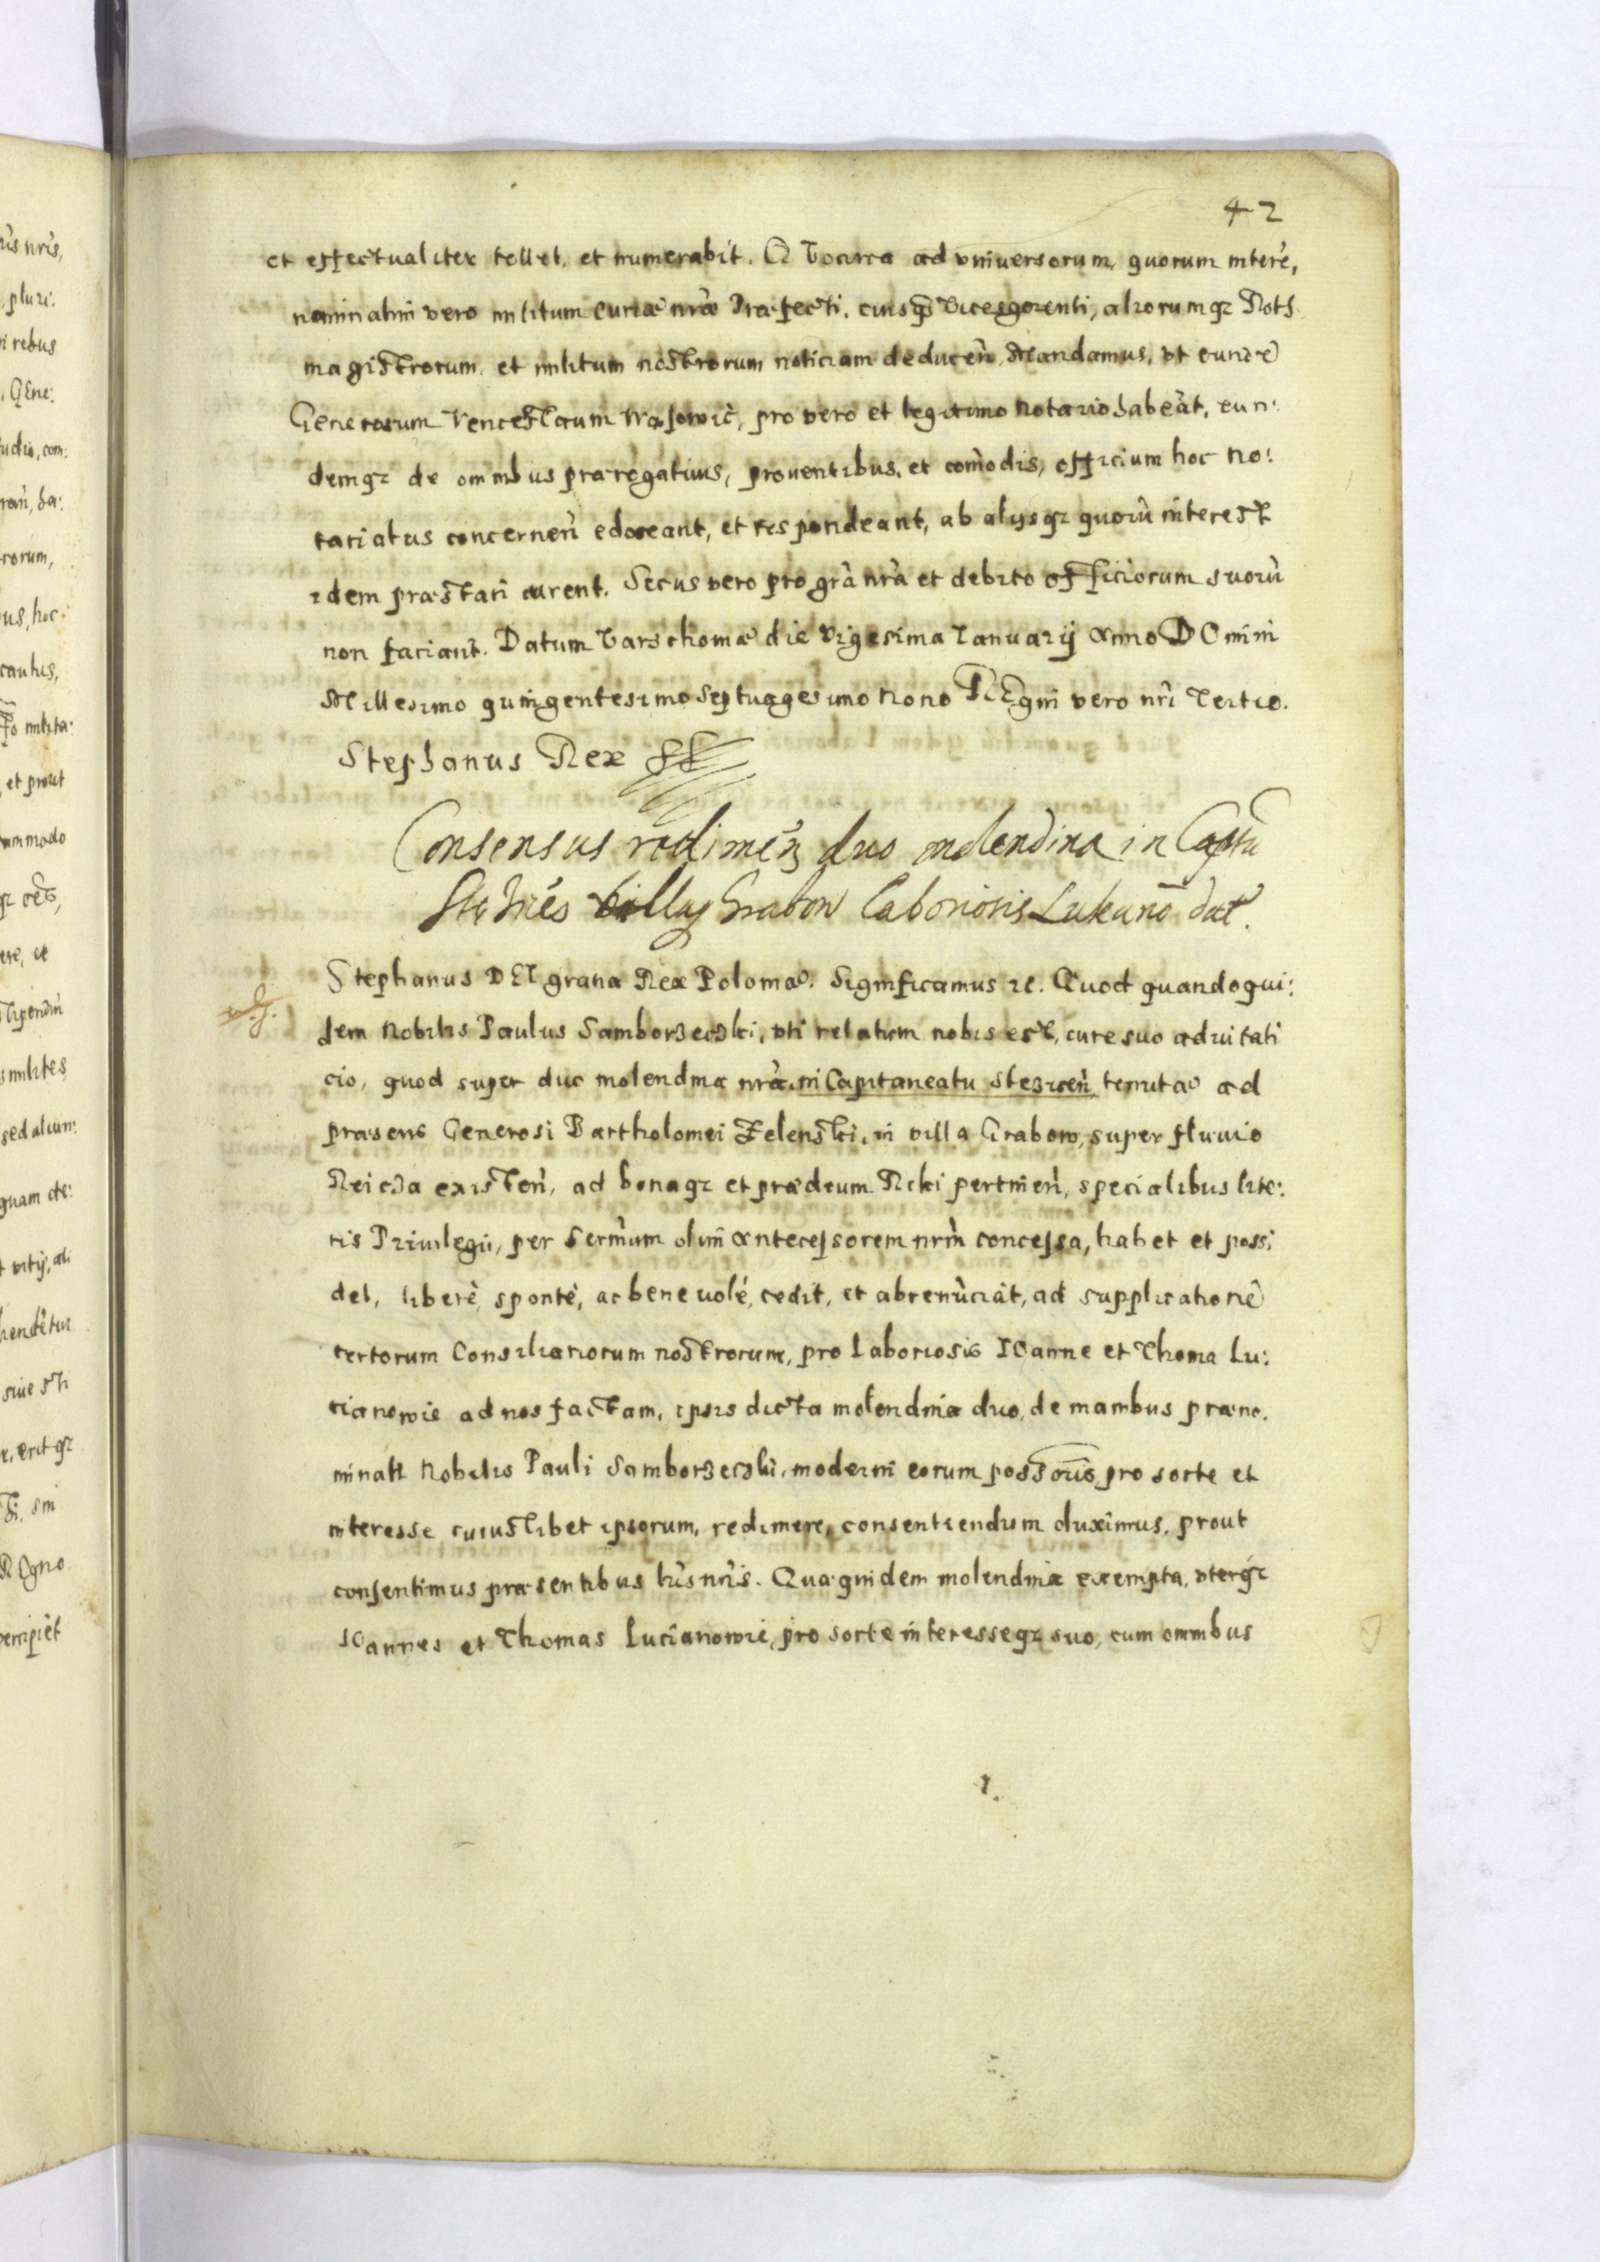 42
et effectualiter tollet. et numerabit. Q Vocirca ad vniversorum, quorum intere,
nominatim vero militum Curiæ nræ Præfecti, cuiusq Vicesgerenti, aliorumqz Roth
magistrorum, et militum nostrorum noticiam deducen̄. Mandamus, vt eundē
Generosum Venceslaum Wąsowic, pro vero et legitimo Notario habeāt, eun:
demqz de omnibus prærogatiuis, prouentibus, et comōdis, officium hoc No:
tariatus concernen̄ edoceant, et respondeant, ab alijsqz quorū interest
idem præstari curent. Secus vero pro grā nrā et debito officiorum suorū
non faciant. Datum Varschouiæ die Vigesima Ianuarij Anno DOmini
Millesimo quingentesimo Septuagesimo Nono REgni vero nri Tertio.
Stephanus Rex ss
Consensus redimen̄ duo molendina in Captu
Stezicēs Villa Grabow Laboriosis Lukano dat.
Stephanus DEI gratia Rex Poloniæ. Significamus ꝛc. Quod quandoqui:
dem Nobilis Paulus Samborzeczki, vti relatum nobis est, iure suo aduitali
cio, quod super duo molendina nrā, in Capitaneatu Stezicen̄, tenutæ ad
præsens Generosi Bartholomei Zelenski, in villa Grabow, super fluuio
Reicza existen̄, ad bonaqz et prædium Ricki pertinen̄, specialibus lite:
ris Priuilegii, per Sermum olim Antecessorem nrm̄ concessa, habet et possi
det, liberè, sponte, ac beneuolé, cedit, et abrenūciāt, ad supplicationē
certorum Consiliariorum nostrorum, pro Laboriosis IOanne et Thoma Lu:
cianowie ad nos factam, ipsis dicta molendina duo, de manibus præno.
minati Nobilis Pauli Samborzeczki, moderni eorum possoris, pro sorte et
interesse cuiuslibet ipsorum, redimere, consentiendum duximus, prout
consentimus præsentibus lris nris. Quæquidem molendina exempta, vterqz
IOannes et Thomas Lucianowie, pro sorte interesseqz suo, cum omnibus